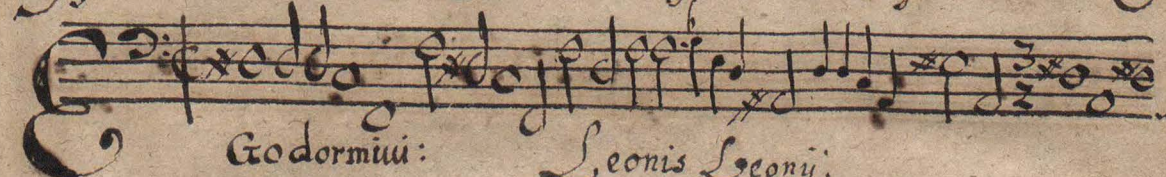 EGo dormiui: Leonis Leonij.